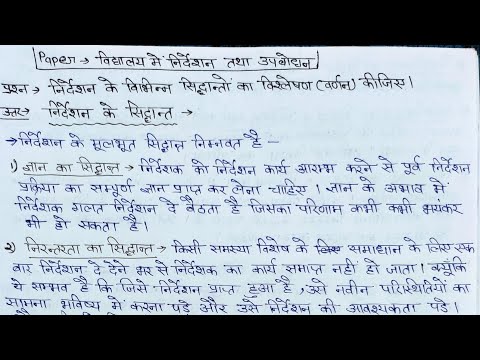 Paper → विद्यालय में निर्देशन तथा उपबोधन
प्रश्न → निर्देशन के विभिन्न सिद्धान्तों का विश्लेषण (वर्णन) कीजिए।
उत्तर → निर्देशन के सिद्धान्त →
→ निर्देशन के मूलभूत सिद्धान्त निम्नवत है —
1) ज्ञान का सिद्धान्त → निर्देशक को निर्देशन कार्य आरम्भ करने से पूर्व निर्देशन
प्रक्रिया का सम्पूर्ण ज्ञान प्राप्त कर लेना चाहिए। ज्ञान के अभाव में
निर्देशक गलत निर्देशन दे बैठता है जिसका परिणाम कभी कभी भयंकर
भी हो सकता है।
2) निरन्तरता का सिद्धान्त → किसी समस्या विशेष के समाधान के लिए एक
बार निर्देशन दे देने भर से निर्देशक का कार्य समाप्त नहीं हो जाता। क्यूंकि
ये सम्भव है कि जिसे निर्देशन प्राप्त हुआ है, उसे नवीन परिस्थितियों का
सामना भविष्य में करना पड़े और उसे निर्देशन की आवश्यकता पड़े।